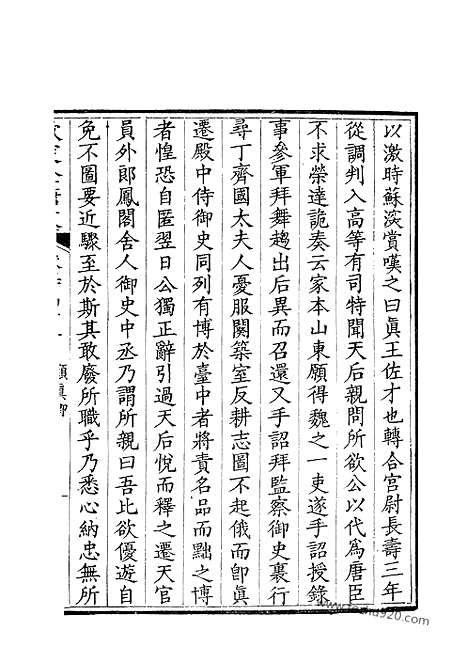 以激時蘇深賞嘆之曰真王佐才也轉合宮尉長壽三年
從調判入高等有司特聞天后親問所欲公以代為唐臣
不求榮達詭奏云家本山東願得魏之一吏遂手詔授錄
事參軍拜舞趨出后異而召還又手詔拜監察御史裏行
尋丁齊國太夫人憂服闋築室反耕志圖不起俄而卽真
遷殿中侍御史同列有博於臺中者將責名品而黜之博
者惶恐自匿翌日公獨正辭引過天后悅而釋之遷天官
員外郎鳳閣舍人御史中丞乃謂所親曰吾比欲優遊自
免不圖要近驟至於斯其敢廢所職乎乃悉心納忠無所
欽定全唐文
顏真卿